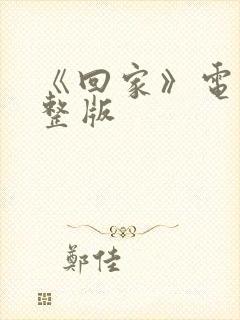 《回家》電
整版
鄭佳